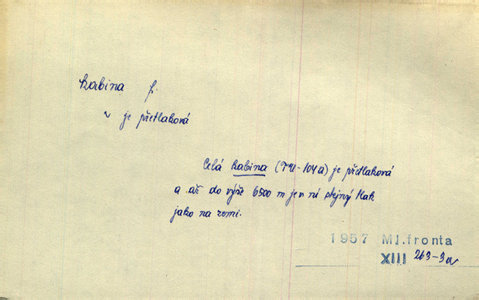 kabina f.
v je přetlaková
Celá kabina (TU-104a) je přetlaková
a až do výše 6500 m je v ní stejný tlak
jako na zemi.
1957 Ml.fronta
XIII 263-3a